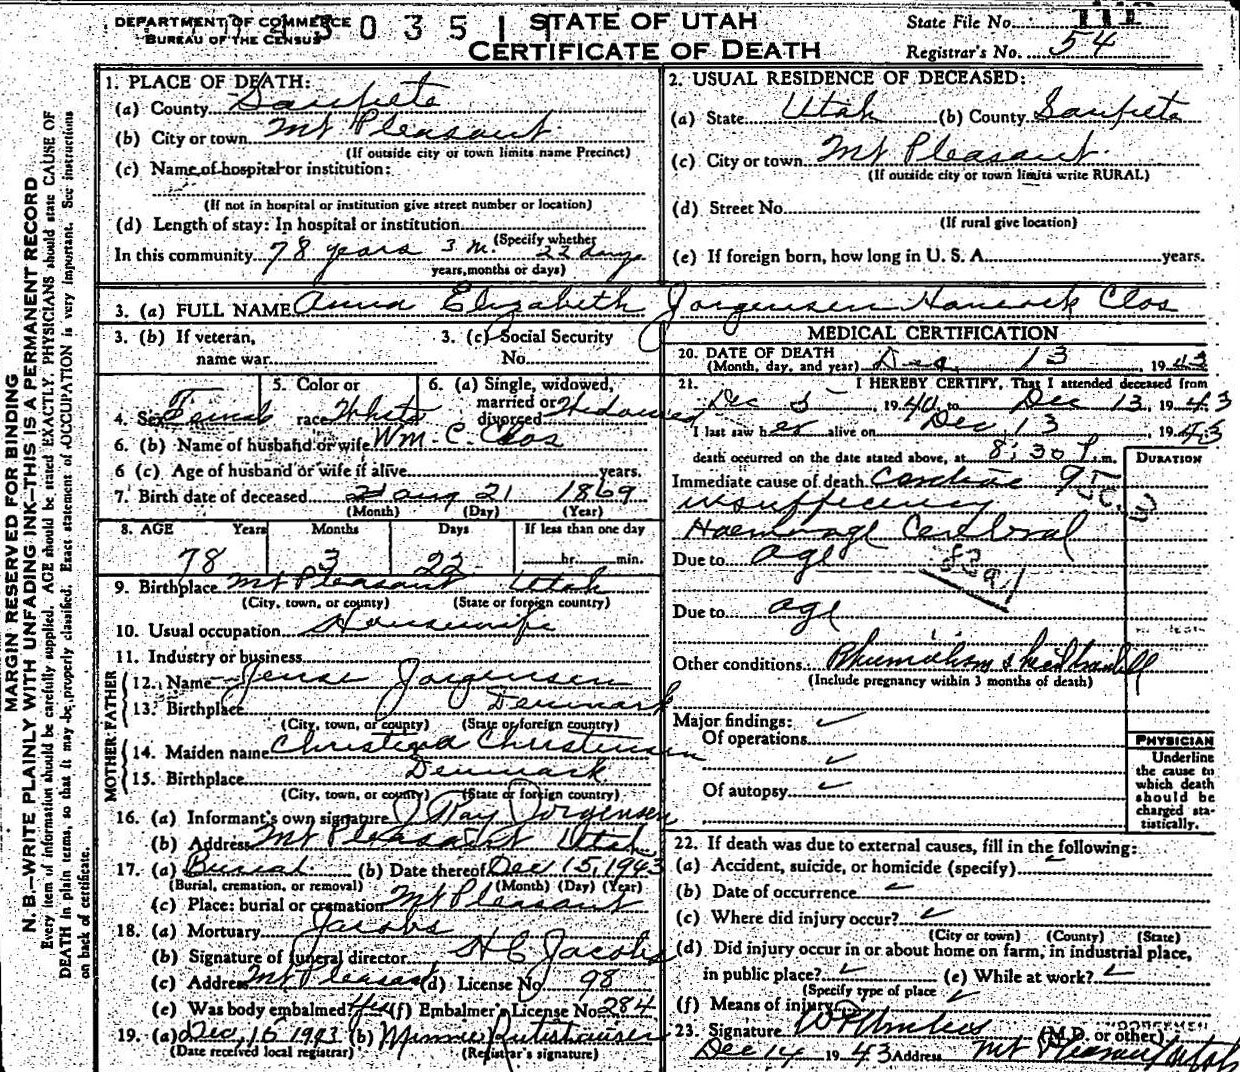 DEPARTMENT OF COMMERCE
BUREAU OF THE CENSUS
STATE OF UTAH
CERTIFICATE OF DEATH
State File No.
Registrar's No. 54
MARGIN RESERVED FOR BINDING
N. B.—WRITE PLAINLY WITH UNFADING INK—THIS IS A PERMANENT RECORD
Every item of information should be carefully supplied. AGE should be stated EXACTLY. PHYSICIANS should state CAUSE OF
DEATH in plain terms, so that it may be properly classified. Exact statement of OCCUPATION is very important. See instructions
on back of certificate.
1. PLACE OF DEATH:
(a) County Sanpete
(b) City or town Mt Pleasant
(If outside city or town limits name Precinct)
(c) Name of hospital or institution:
(If not in hospital or institution give street number or location)
(d) Length of stay: In hospital or institution
(Specify whether
In this community 78 years 3 m. 22 days
years, months or days)
2. USUAL RESIDENCE OF DECEASED:
(a) State Utah (b) County Sanpete
(c) City or town Mt Pleasant
(If outside city or town limits write RURAL)
(d) Street No.
(If rural give location)
(e) If foreign born, how long in U. S. A. years.
3. (a) FULL NAME Anna Elizabeth Jorgensen Hancock Clos
3. (b) If veteran,
name war
3. (c) Social Security
No.
4. Sex Female
5. Color or
race White
6. (a) Single, widowed,
married or
divorced Widowed
6. (b) Name of husband or wife Wm. C. Clos
6 (c) Age of husband or wife if alive years.
7. Birth date of deceased Aug 21 1869
(Month) (Day) (Year)
8. AGE Years Months Days If less than one day
78 3 22 hr. min.
9. Birthplace Mt Pleasant Utah
(City, town, or county) (State or foreign country)
10. Usual occupation Housewife
11. Industry or business
FATHER
12. Name Jense Jorgensen
13. Birthplace Denmark
(City, town, or county) (State or foreign country)
MOTHER
14. Maiden name Christena Christensen
15. Birthplace Denmark
(City, town, or county) (State or foreign country)
16. (a) Informant's own signature J Ray Jorgensen
(b) Address Mt Pleasant Utah
17. (a) Burial (b) Date thereof Dec 15, 1943
(Burial, cremation, or removal) (Month) (Day) (Year)
(c) Place: burial or cremation Mt Pleasant
18. (a) Mortuary Jacobs
(b) Signature of funeral director H C Jacobs
(c) Address Mt Pleasant (d) License No. 98
(e) Was body embalmed? (f) Embalmer's License No. 284
19. (a) Dec, 16 1943 (b) Minnie Rutishauser
(Date received local registrar) (Registrar's signature)
MEDICAL CERTIFICATION
20. DATE OF DEATH
(Month, day, and year) Dec, 13 1943
21. I HEREBY CERTIFY, That I attended deceased from
Dec 5, 1940, to Dec 13, 1943
I last saw her alive on Dec 13, 1943
death occurred on the date stated above, at 8:30 P.m.
DURATION
Immediate cause of death Cardiac 95c
insufficiency
Haemorage Cerebral
Due to age 83a1
Due to age
Other conditions
(Include pregnancy within 3 months of death)
Major findings:
Of operations
Of autopsy
PHYSICIAN
Underline
the cause to
which death
should be
charged sta-
tistically.
22. If death was due to external causes, fill in the following:
(a) Accident, suicide, or homicide (specify)
(b) Date of occurrence
(c) Where did injury occur?
(City or town) (County) (State)
(d) Did injury occur in or about home on farm, in industrial place,
in public place? (e) While at work?
(Specify type of place)
(f) Means of injury
23. Signature (M.D. or other)
Dec 14 1943 Address Mt Pleasant Utah